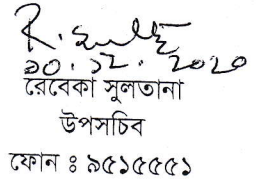 ১০.১২.২০২০
রেবেকা সুলতানা
উপসচিব
ফোন ঃ ৯৫১৫৫৫১